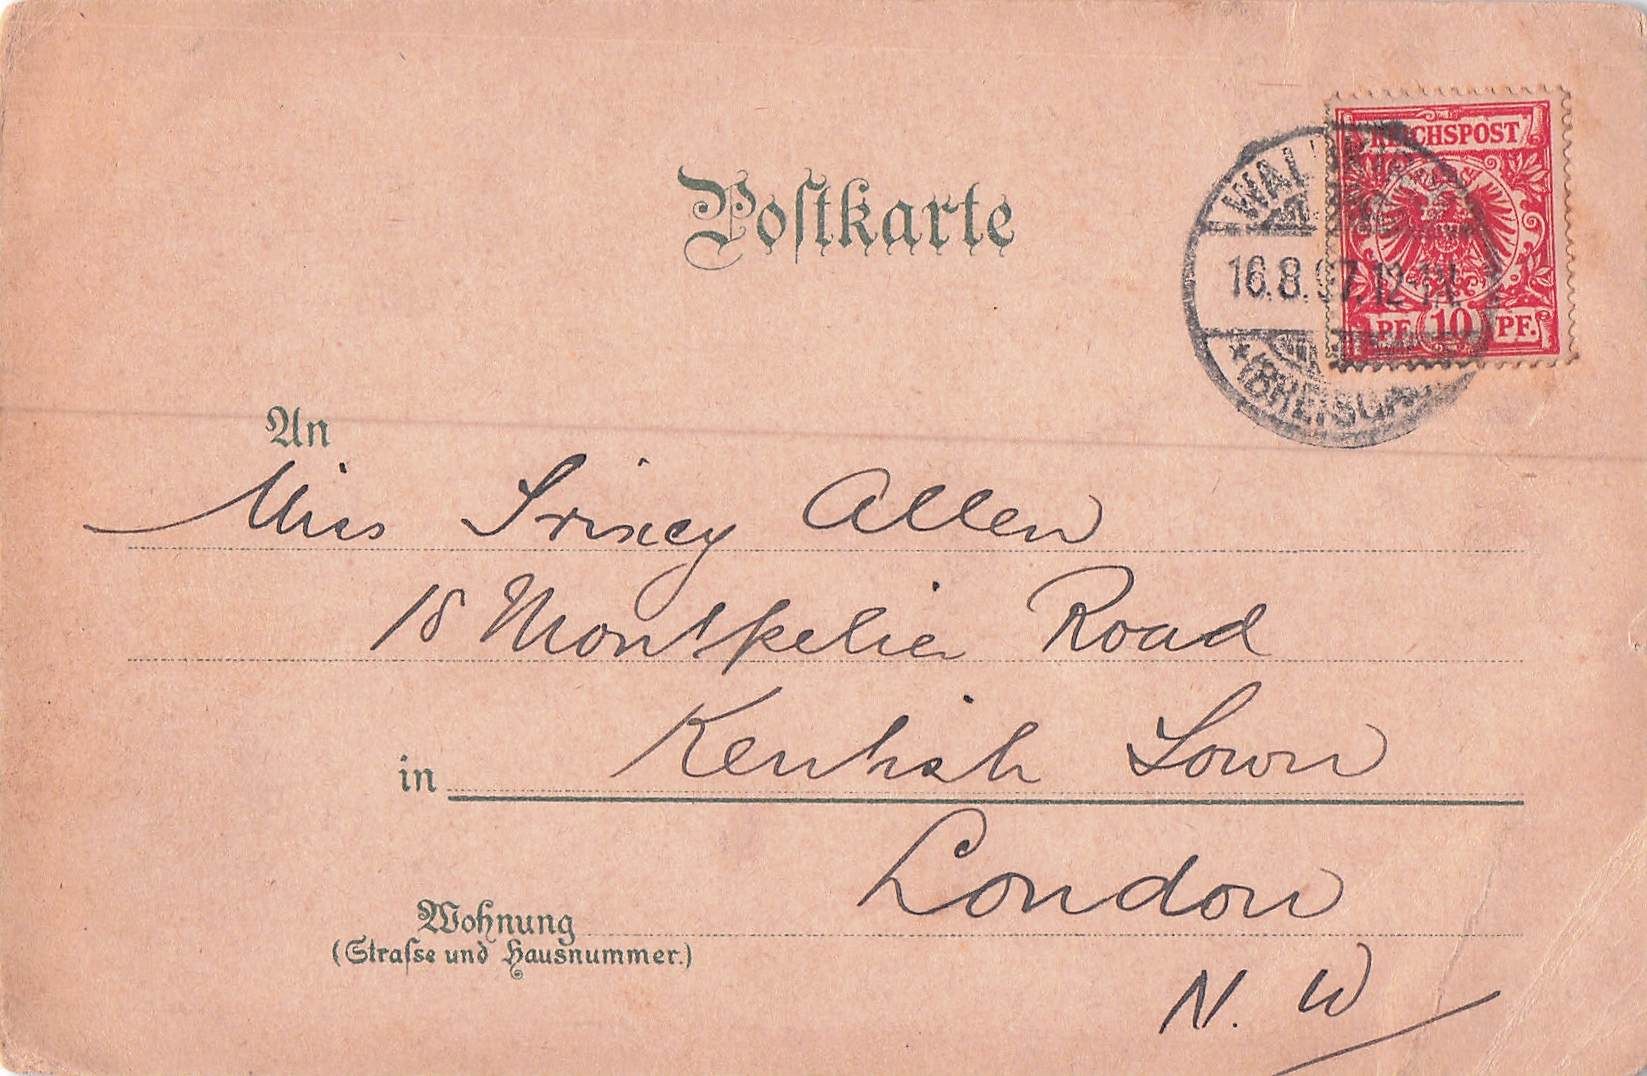 Postkarte
REICHSPOST
16.8.97.12-1N.
PF. 10 PF.
*(BREISGAU)
An
Miss Trixey Allen
18 Montpelier Road
in Kentish Town
London
Wohnung
(Strasse und Hausnummer.)
N. W